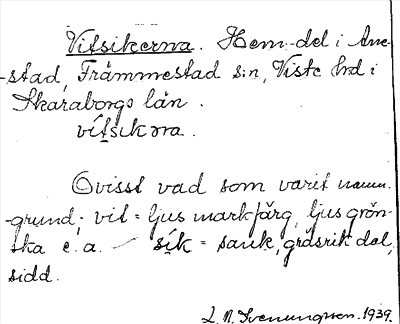 Vitsikerna. Hem.-del i Ane-
-stad, Främmestad s:n, Viste hrd i
Skaraborgs län.
vítsikəra.
Ovisst vad som varit namn-
-grund; vit = ljus markfärg, ljus grön-
ska e. a. — sik = sank, gräsrik dal,
sidd.
L. N. Svenungsson. 1939.